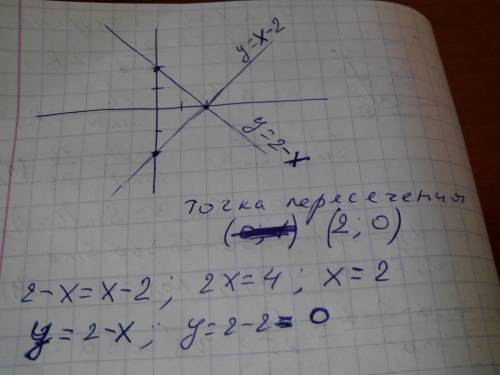 y=x-2
y=2-x
точка пересечения
(2; 0)
2-x=x-2; 2x=4; x=2
y=2-x; y=2-2=0